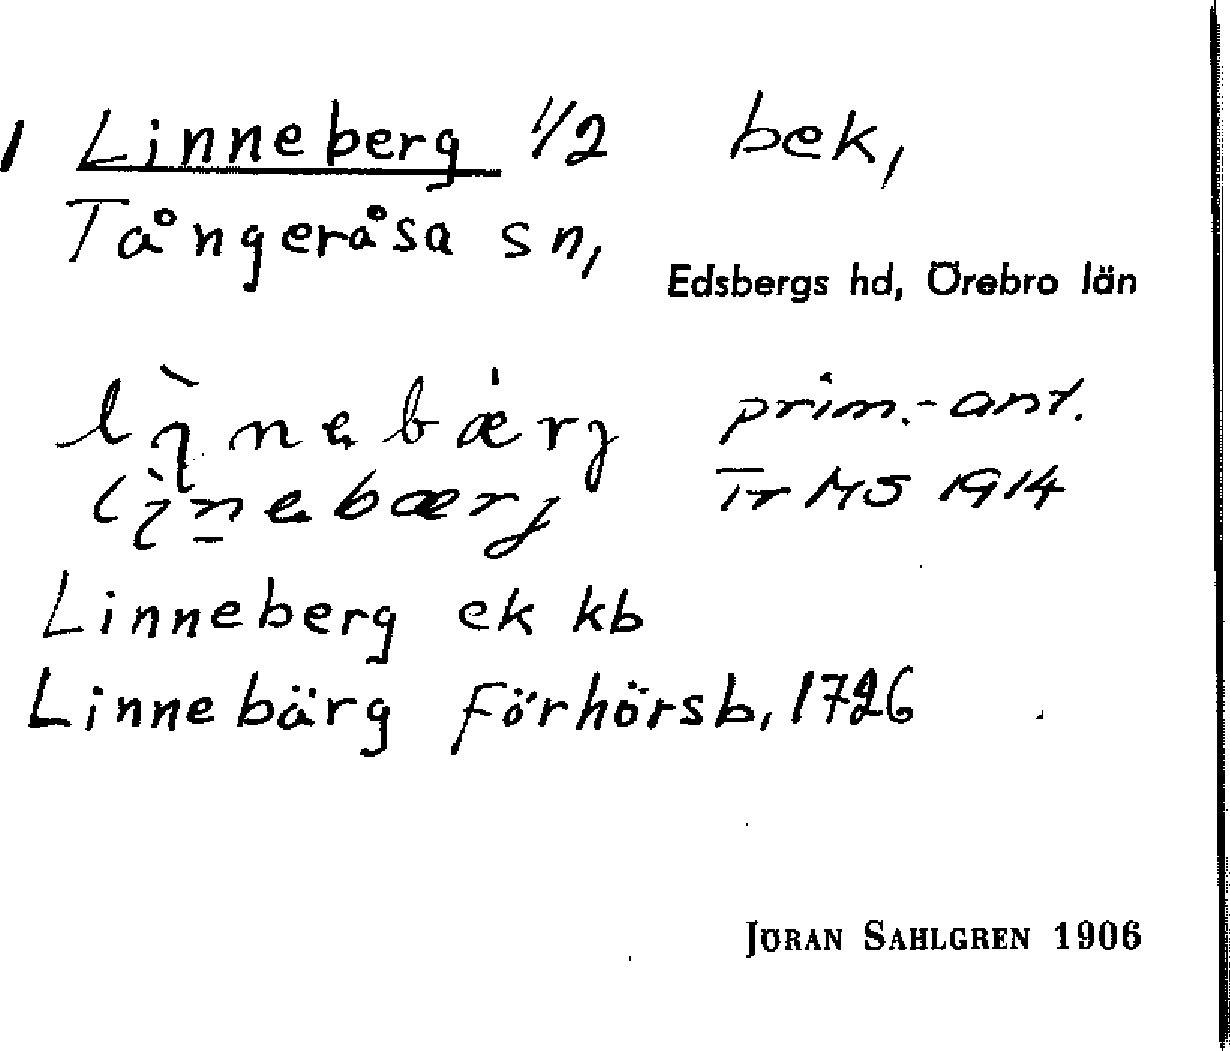 1 Linneberg 1/2 bek,
Tångeråsa sn,
Edsbergs hd, Örebro län
prim.-ant.
Tr MS 1914
Linneberg ek kb
Linnebärg Förhörsb, 1726
JÖRAN SAHLGREN 1906